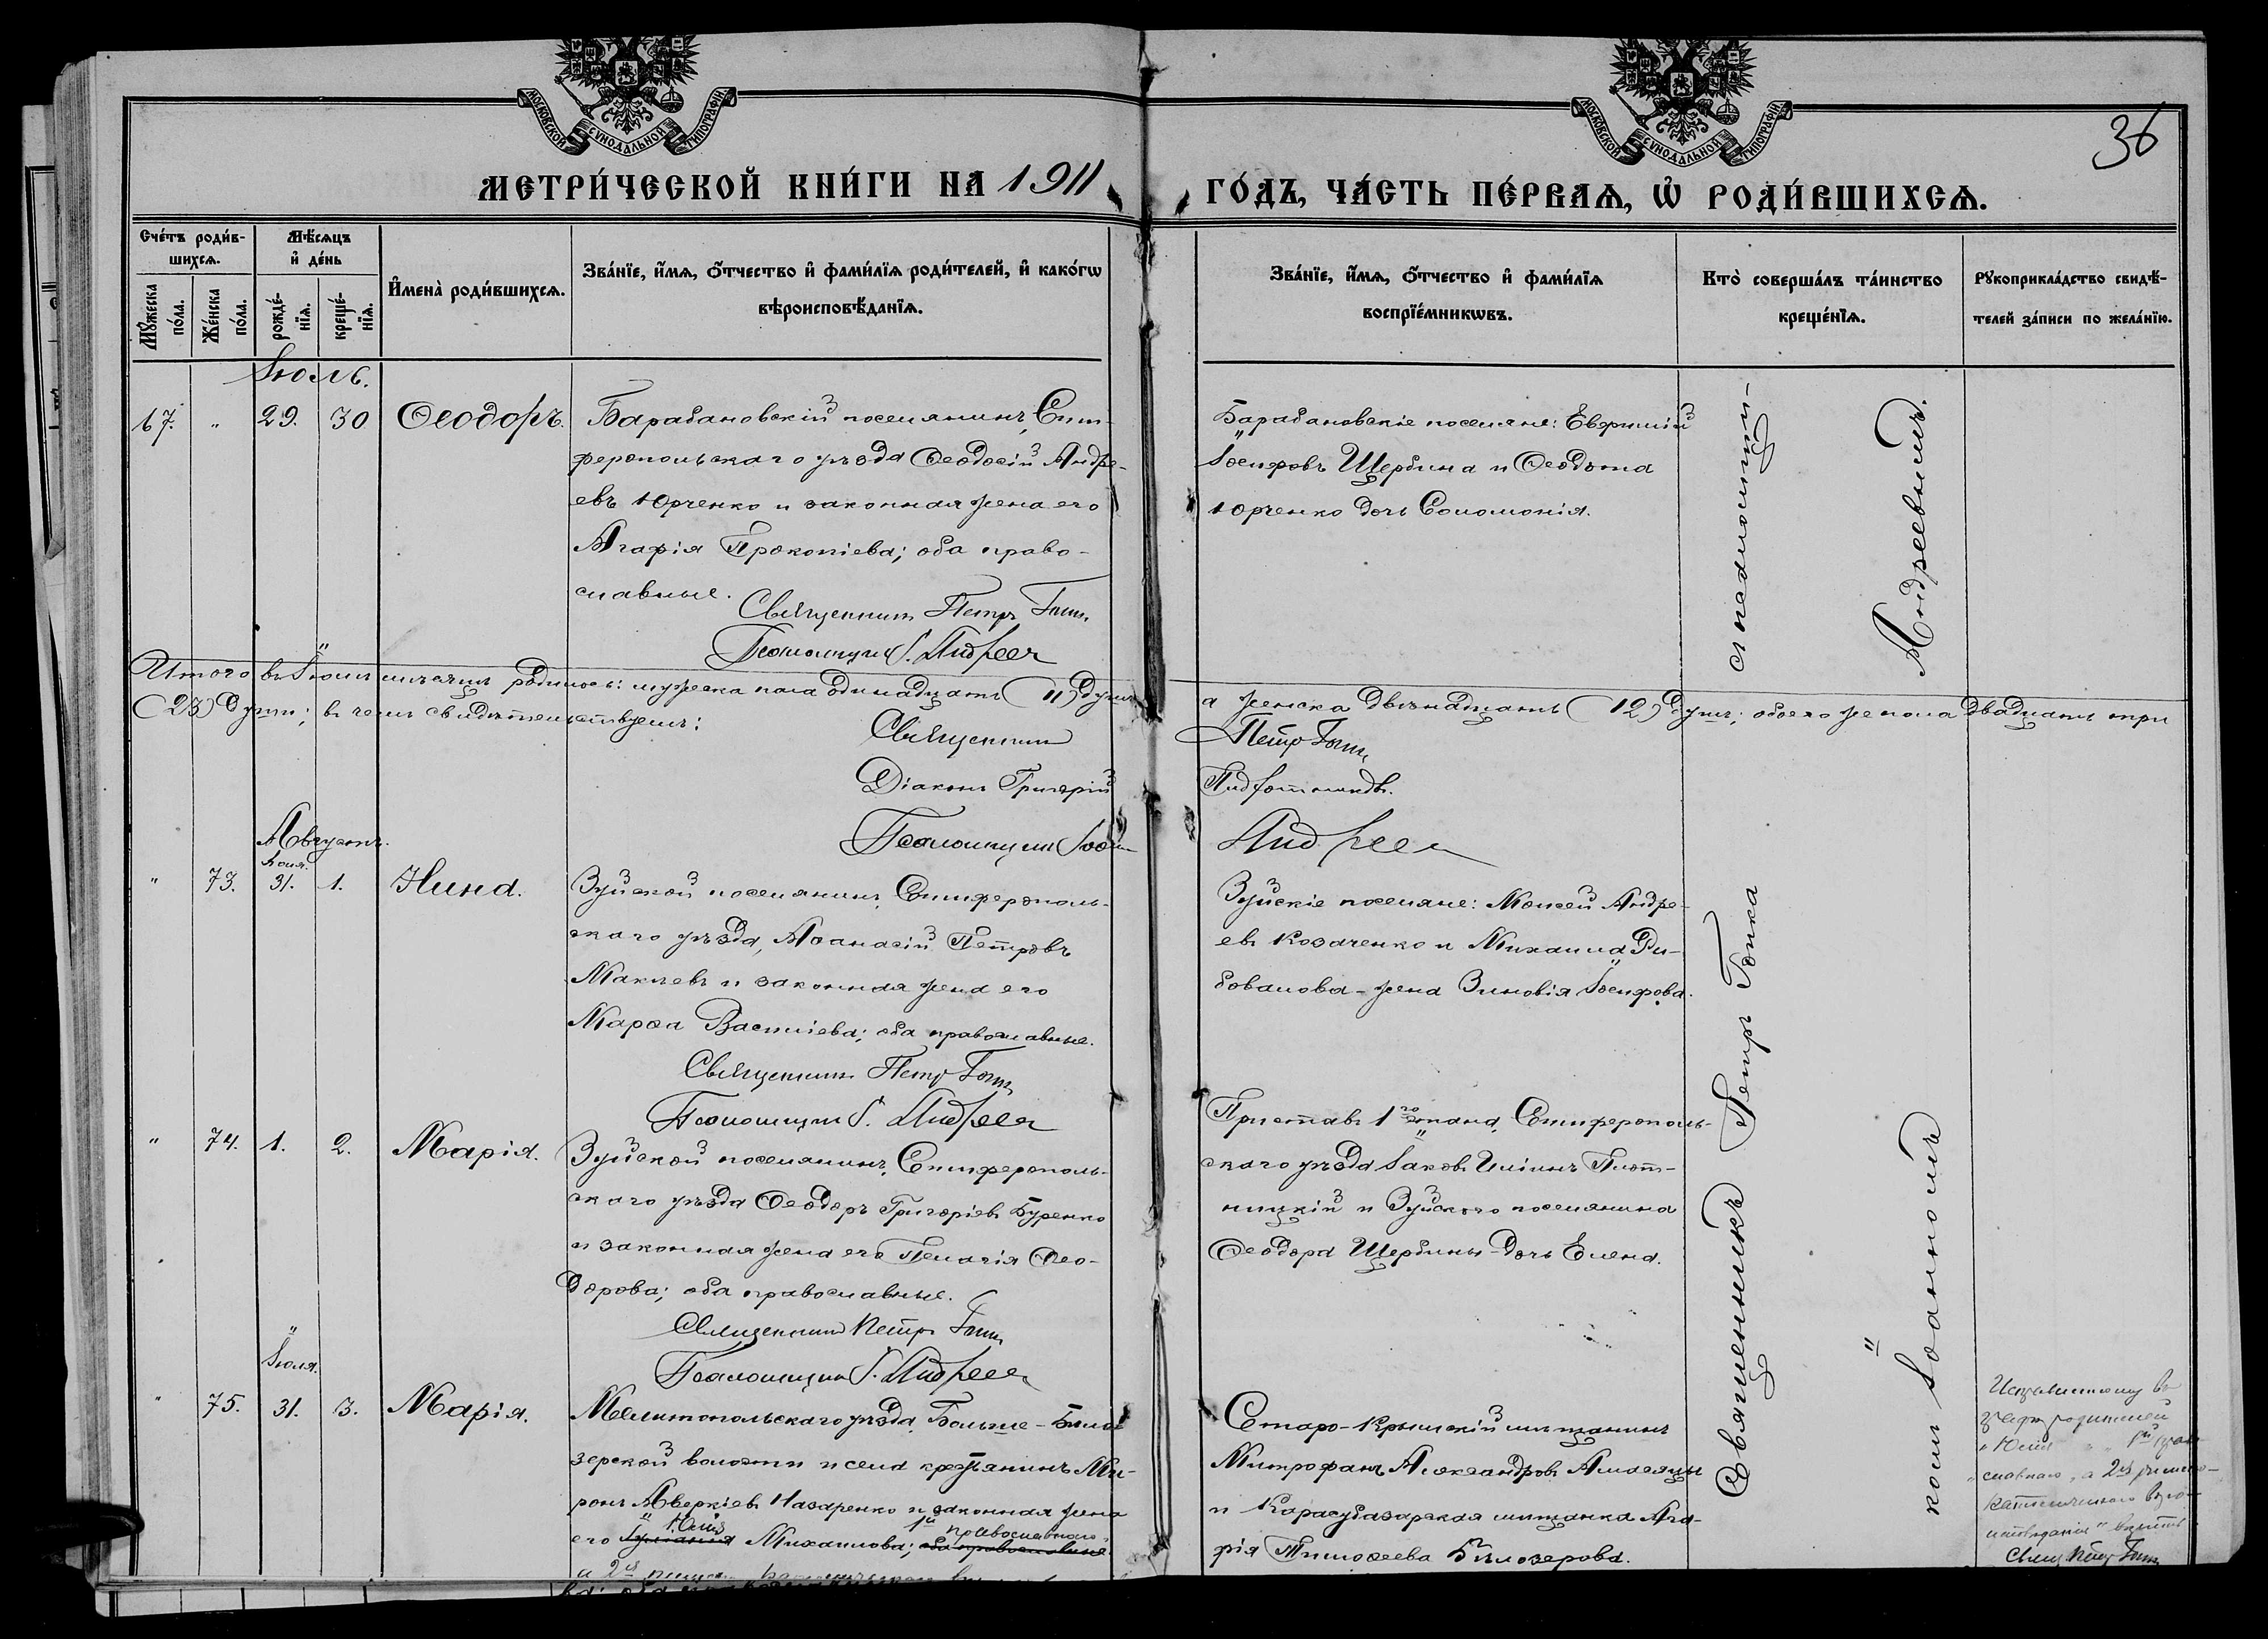 МОСКОВСКОЙ СѴНОДАЛЬНОЙ ТИПОГРАФІИ.
МОСКОВСКОЙ СѴНОДАЛЬНОЙ ТИПОГРАФІИ.
36
МЕТРИ́ЧЕСКОЙ КНИ́ГИ НА 1911
ГО́ДЪ, ЧА́СТЬ ПЕ́РВАѦ, Ѡ РОДИ́ВШИХСѦ.
Сче́тъ роди́в-
шихсѧ.
Мꙋ́жеска
по́ла.
Же́нска
по́ла.
Мѣ́сѧцъ
и де́нь
рожде́-
нїѧ.
креще́-
нїѧ.
Имена̀ роди́вшихсѧ.
Зва́нїе, и́мѧ, ѻ́тчество и фами́лїѧ роди́телей, и како́гѡ
вѣроисповѣ́данїѧ.
Зва́нїе, и́мѧ, ѻ́тчество и фами́лїѧ
воспрїе́мникѡвъ.
Кто̀ соверша́лъ та́инство
креще́нїѧ.
Рꙋкоприкла́дство свидѣ́-
телей за́писи по жела́нїю.
Іюль.
67. " 29. 30 Ѳеодоръ.
Барабановскій поселянинъ, Сим-
феропольскаго уѣзда Ѳеодосій Андре-
евъ Юрченко и законная жена его
Агафія Прокопіева; оба право-
славные.
Священникъ Петръ
Псаломщикъ І. Андреев
Барабановскіе поселяне:
Іосифовъ Щербина и
Юрченко дочь Соломонія.
Итого въ Іюлѣ мѣсяцѣ родилось: мужеска пола одинадцать (11) душъ
а женска двѣнадцать (12) душъ; обоего же пола двадцать три
(23) души; въ чемъ свидѣтельствуемъ:
Священникъ Петръ
Діаконъ Григорій
Псаломщикъ Андреев
Августъ.
Іюля.
" 73. 31. 1. Нина.
Зуйской поселянинъ, Симферополь-
скаго уѣзда, Аѳанасій Петровъ
и законная жена его
Марѳа Василіева; оба православные.
Священникъ Петръ
Псаломщикъ І. Андреев
Зуйскіе поселяне: Моисей Андре-
евъ Козаченко и Михаила Ди-
бовалова - жена Зиновія Іосифова.
" 74. 1. 2. Марія.
Зуйской поселянинъ, Симферополь-
скаго уѣзда Ѳеодоръ Григоріевъ Буренко
и законная жена его Пелагія Ѳео-
дорова; оба православные.
Священникъ Петръ
Псаломщикъ І. Андреев
Приставъ 1го стана, Симферополь-
скаго уѣзда Іаковъ Иліинъ Плот-
ницкій и Зуйского поселянина
Ѳеодора Щербины - дочь Елена.
Іюля.
" 75. 31. 3. Марія.
Мелитопольскаго уѣзда, Больше-Бѣло-
зерской волости и села крестьянинъ Ми-
ронъ Аверкіевъ Назаренко и законная жена
его Юлія Михаилова; 1й православнаго, оба православные.
а 2я
Старо-Крымскій мѣщанинъ
Митрофанъ Александровъ
и Карасубазарская мѣщанка Ага-
фія Тимоѳеева Бѣлозерова.
Священникъ Петръ Гопка
съ псаломщи-
комъ Іоанномъ Андреевымъ.